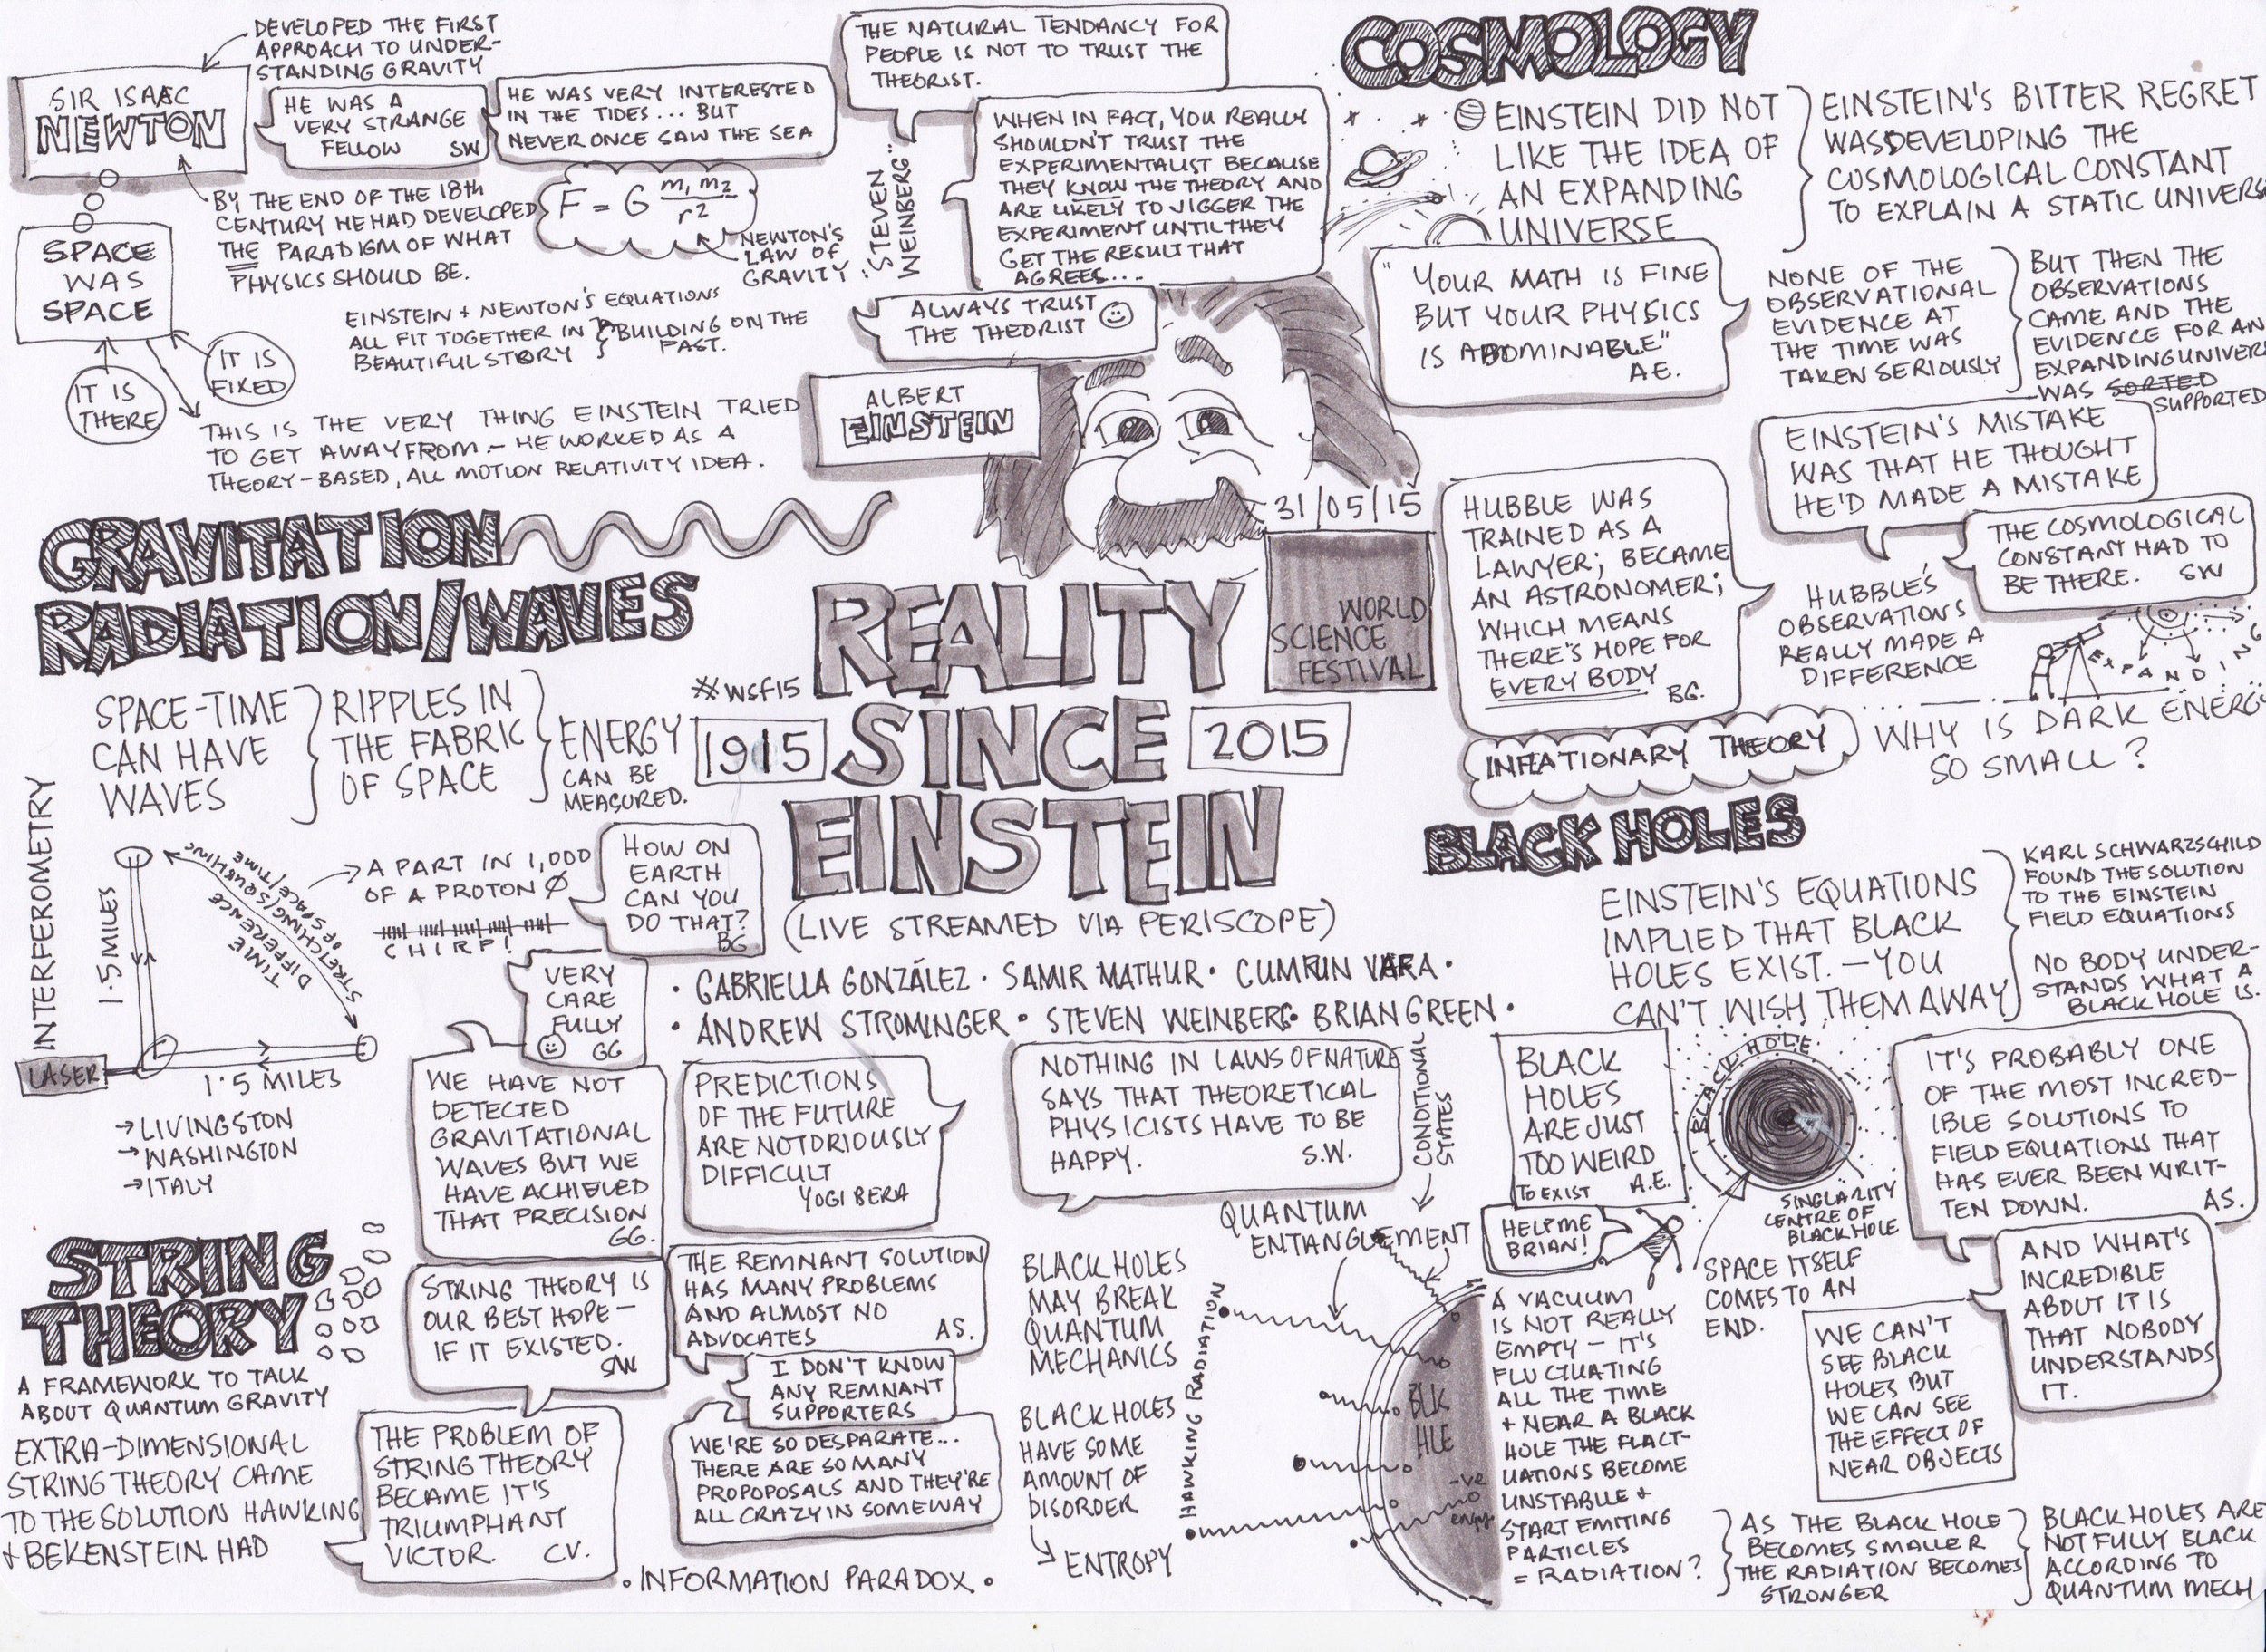 DEVELOPED THE FIRST
APPROACH TO UNDER-
STANDING GRAVITY
SIR ISAAC
NEWTON
HE WAS A
VERY STRANGE
FELLOW SW
HE WAS VERY INTERESTED
IN THE TIDES... BUT
NEVER ONCE SAW THE SEA
BY THE END OF THE 18th
CENTURY HE HAD DEVELOPED
THE PARADIGM OF WHAT
PHYSICS SHOULD BE.
F = G m1 m2 / r2
NEWTON'S
LAW OF
GRAVITY
SPACE
WAS
SPACE
IT IS
THERE
IT IS
FIXED
EINSTEIN + NEWTON'S EQUATIONS
ALL FIT TOGETHER IN A
BEAUTIFUL STORY
BUILDING ON THE
PAST.
THIS IS THE VERY THING EINSTEIN TRIED
TO GET AWAY FROM - HE WORKED AS A
THEORY-BASED, ALL MOTION RELATIVITY IDEA.
THE NATURAL TENDANCY FOR
PEOPLE IS NOT TO TRUST THE
THEORIST.
"STEVEN
WEINBERG"
WHEN IN FACT, YOU REALLY
SHOULDN'T TRUST THE
EXPERIMENTALIST BECAUSE
THEY KNOW THE THEORY AND
ARE LIKELY TO JIGGER THE
EXPERIMENT UNTIL THEY
GET THE RESULT THAT
AGREES....
ALWAYS TRUST
THE THEORIST
ALBERT
EINSTEIN
COSMOLOGY
EINSTEIN DID NOT
LIKE THE IDEA OF
AN EXPANDING
UNIVERSE
EINSTEIN'S BITTER REGRET
WAS DEVELOPING THE
COSMOLOGICAL CONSTANT
TO EXPLAIN A STATIC UNIVERS
"YOUR MATH IS FINE
BUT YOUR PHYSICS
IS ABOMINABLE"
AE.
NONE OF THE
OBSERVATIONAL
EVIDENCE AT
THE TIME WAS
TAKEN SERIOUSLY
BUT THEN THE
OBSERVATIONS
CAME AND THE
EVIDENCE FOR AN
EXPANDING UNIVER
WAS SORTED
SUPPORTED
EINSTEIN'S MISTAKE
WAS THAT HE THOUGHT
HE'D MADE A MISTAKE
THE COSMOLOGICAL
CONSTANT HAD TO
BE THERE. SW
HUBBLE WAS
TRAINED AS A
LAWYER; BECAME
AN ASTRONOMER;
WHICH MEANS
THERE'S HOPE FOR
EVERY BODY
BG.
HUBBLE'S
OBSERVATIONS
REALLY MADE A
DIFFERENCE
EXPANDING
INFLATIONARY THEORY
WHY IS DARK ENERG
SO SMALL?
31/05/15
WORLD
SCIENCE
FESTIVAL
GRAVITATION
RADIATION/WAVES
SPACE-TIME
CAN HAVE
WAVES
RIPPLES IN
THE FABRIC
OF SPACE
ENERGY
CAN BE
MEASURED.
#WSF15
REALITY
1915 SINCE 2015
EINSTEIN
(LIVE STREAMED VIA PERISCOPE)
• GABRIELLA GONZÁLEZ • SAMIR MATHUR • CUMRUN VAFA •
• ANDREW STROMINGER • STEVEN WEINBERG • BRIAN GREEN •
INTERFEROMETRY
1.5 MILES
STRETCHING/SQUISHING
OF SPACE/TIME
TIME
DIFFERENCE
A PART IN 1,000
OF A PROTON
CHIRP!
HOW ON
EARTH
CAN YOU
DO THAT?
BG
VERY
CARE
FULLY
GG
LASER
1.5 MILES
→ LIVINGSTON
→ WASHINGTON
→ ITALY
WE HAVE NOT
DETECTED
GRAVITATIONAL
WAVES BUT WE
HAVE ACHIEVED
THAT PRECISION
GG.
PREDICTIONS
OF THE FUTURE
ARE NOTORIOUSLY
DIFFICULT
YOGI BERA
NOTHING IN LAWS OF NATURE
SAYS THAT THEORETICAL
PHYSICISTS HAVE TO BE
HAPPY. S.W.
STRING
THEORY
A FRAMEWORK TO TALK
ABOUT QUANTUM GRAVITY
EXTRA-DIMENSIONAL
STRING THEORY CAME
TO THE SOLUTION HAWKING
+ BEKENSTEIN HAD
STRING THEORY IS
OUR BEST HOPE -
IF IT EXISTED.
SW
THE PROBLEM OF
STRING THEORY
BECAME IT'S
TRIUMPHANT
VICTOR. CV.
THE REMNANT SOLUTION
HAS MANY PROBLEMS
AND ALMOST NO
ADVOCATES AS.
I DON'T KNOW
ANY REMNANT
SUPPORTERS
WE'RE SO DESPARATE...
THERE ARE SO MANY
PROPOPOSALS AND THEY'RE
ALL CRAZY IN SOMEWAY
• INFORMATION PARADOX •
BLACK HOLES
MAY BREAK
QUANTUM
MECHANICS
BLACK HOLES
HAVE SOME
AMOUNT OF
DISORDER
ENTROPY
CONDITIONAL
STATES
QUANTUM
ENTANGLEMENT
HAWKING RADIATION
BLK
HLE
-VE
energy
BLACK HOLES
EINSTEIN'S EQUATIONS
IMPLIED THAT BLACK
HOLES EXIST. - YOU
CAN'T WISH THEM AWAY
KARL SCHWARZSCHILD
FOUND THE SOLUTION
TO THE EINSTEIN
FIELD EQUATIONS
NO BODY UNDER-
STANDS WHAT A
BLACK HOLE IS.
BLACK
HOLES
ARE JUST
TOO WEIRD
TO EXIST A.E.
BLACK HOLE
HELP ME
BRIAN!
SINGLARITY
CENTRE OF
BLACK HOLE
SPACE ITSELF
COMES TO AN
END.
IT'S PROBABLY ONE
OF THE MOST INCRED-
IBLE SOLUTIONS TO
FIELD EQUATIONS THAT
HAS EVER BEEN WRIT-
TEN DOWN. AS.
AND WHAT'S
INCREDIBLE
ABOUT IT IS
THAT NOBODY
UNDERSTANDS
IT.
WE CAN'T
SEE BLACK
HOLES BUT
WE CAN SEE
THE EFFECT OF
NEAR OBJECTS
A VACUUM
IS NOT REALLY
EMPTY - IT'S
FLUCTUATING
ALL THE TIME
+ NEAR A BLACK
HOLE THE FLACT-
UATIONS BECOME
UNSTABLE +
START EMITING
PARTICLES
= RADIATION?
AS THE BLACK HOLE
BECOMES SMALLER
THE RADIATION BECOMES
STRONGER
BLACK HOLES ARE
NOT FULLY BLACK
ACCORDING TO
QUANTUM MECH